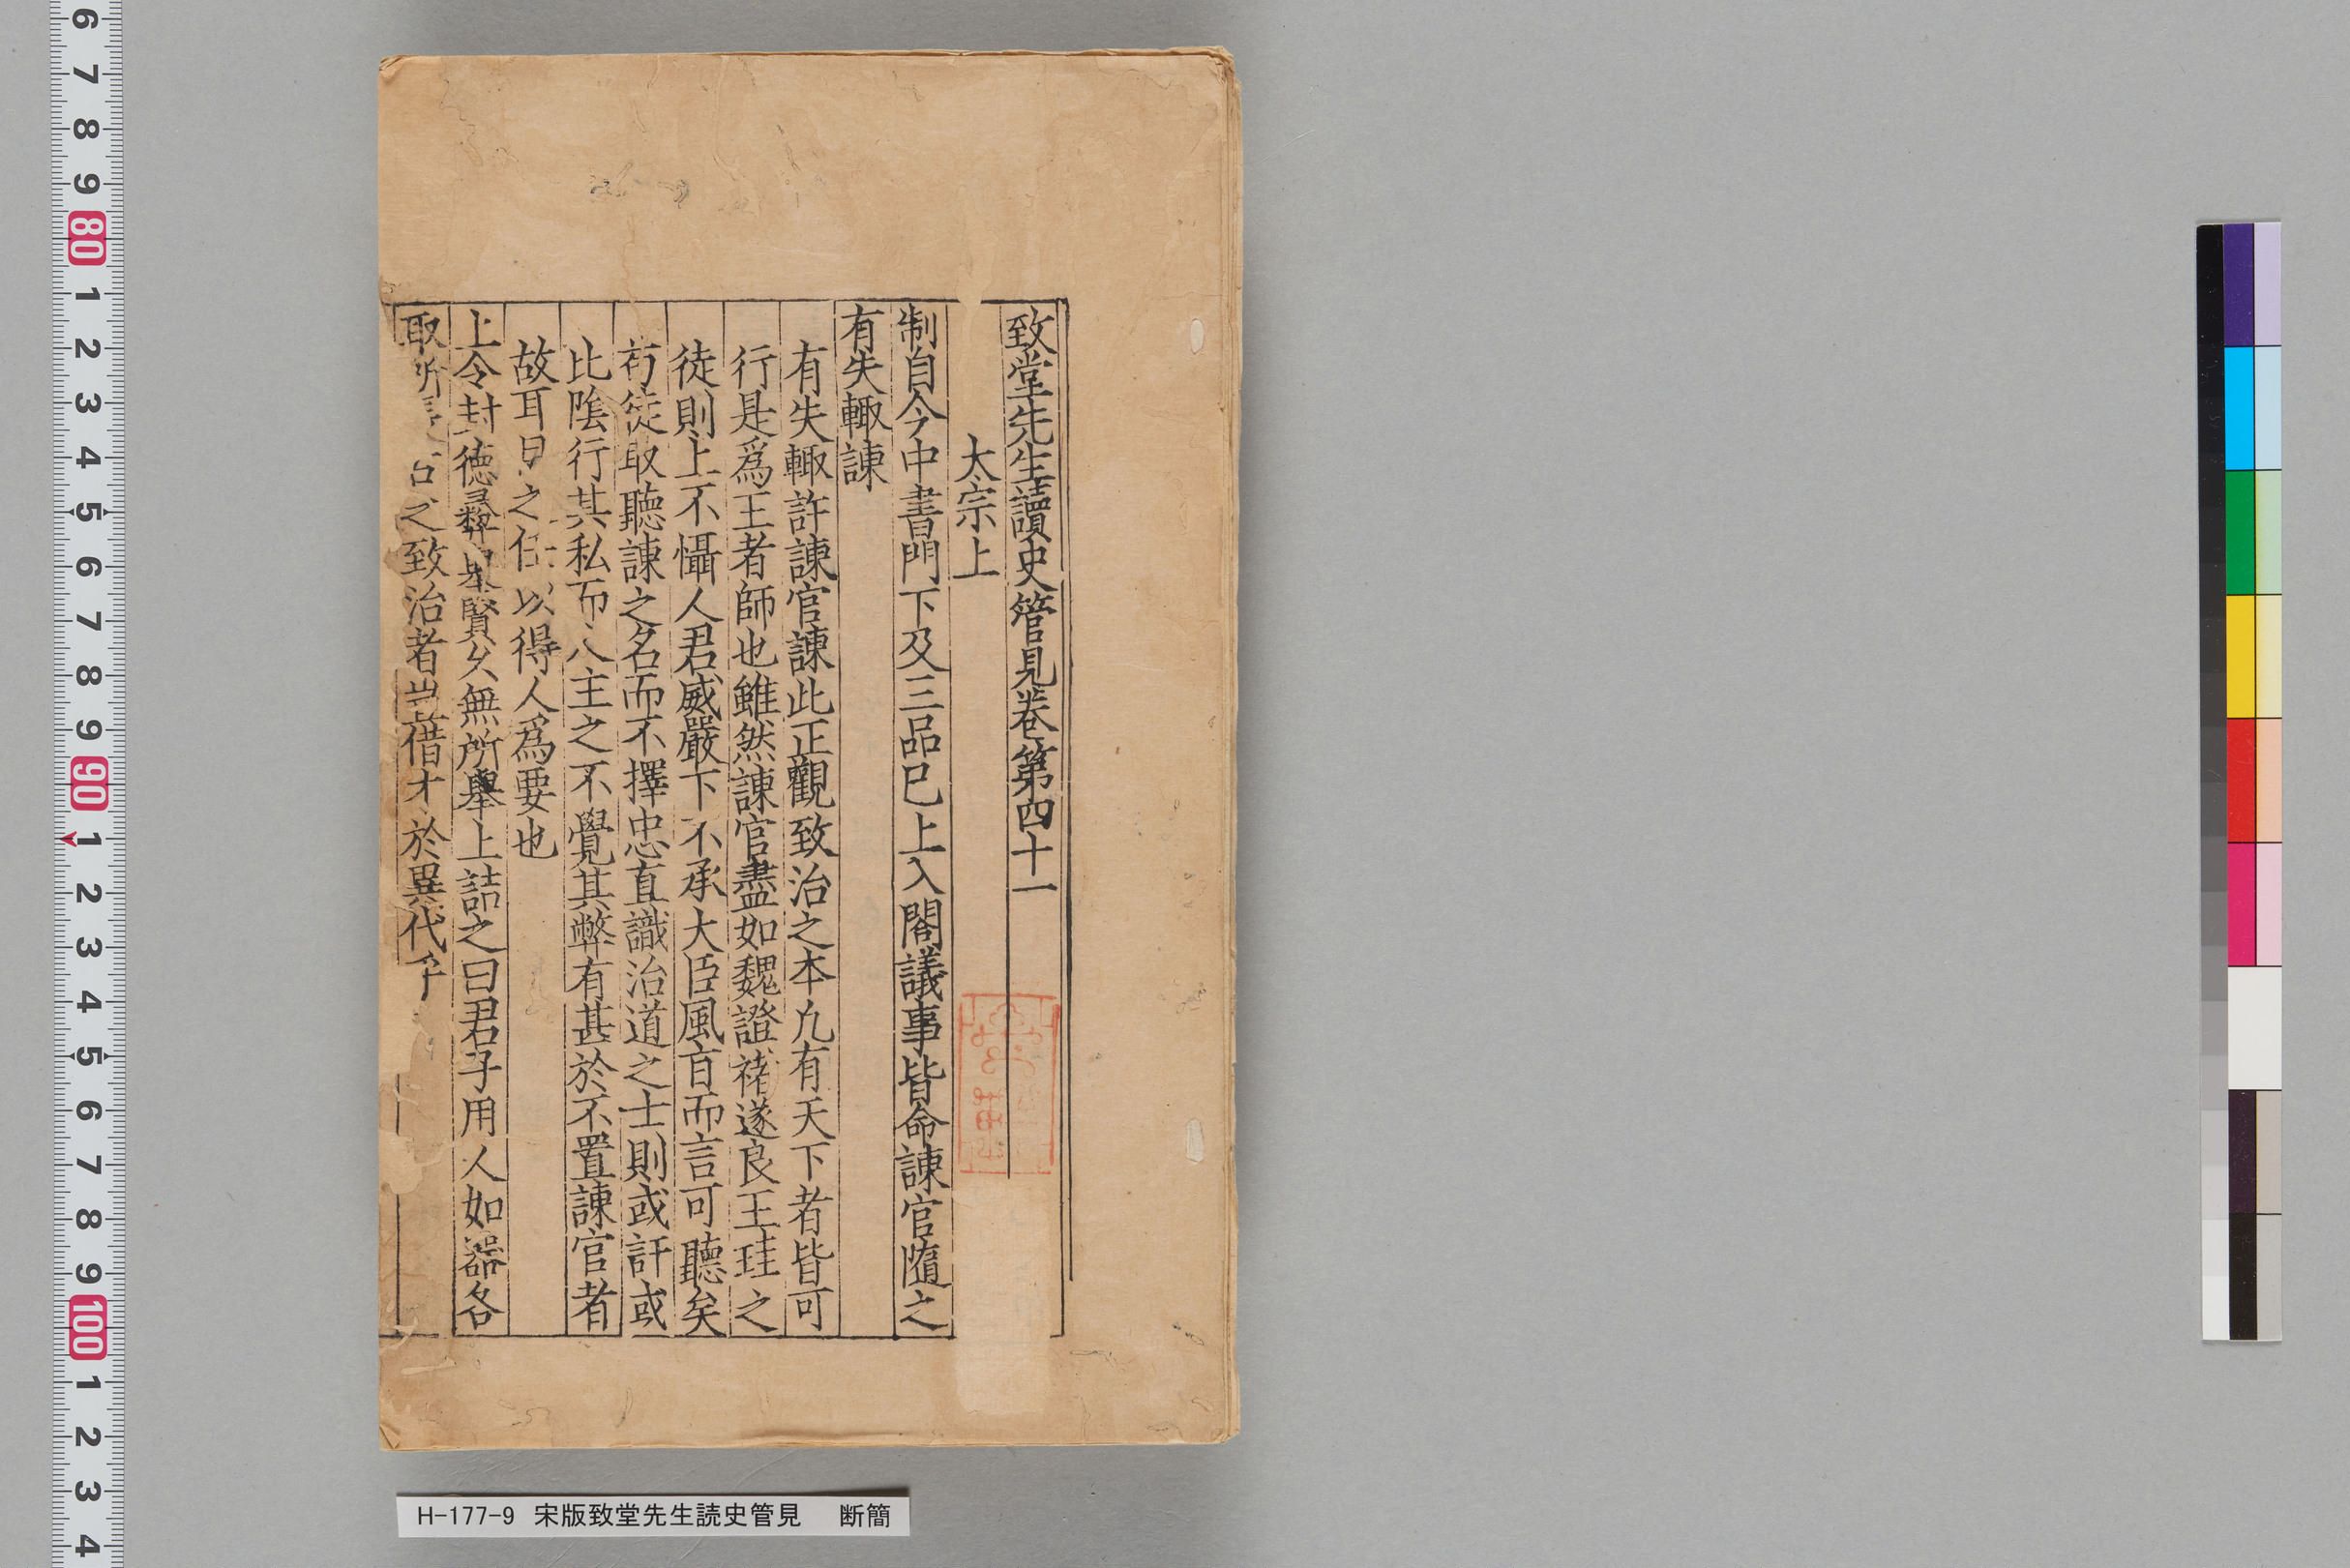 致堂先生讀史管見卷第四十一
太宗上
制自今中書門下及三品已上入閤議事皆命諫官隨之
有失輙諫
有失輙許諫官諫此正觀致治之本凢有天下者皆可
行是爲王者師也雖然諫官盡如魏證褚遂良王珪之
徒則上不懾人君威嚴下不承大臣風盲而言可聽矣
苟徒取聽諫之名而不擇忠直識治道之士則或訐或
比隂行其私而人主之不覺其弊有甚於不置諫官者
故耳目之任以得人爲要也
上令封徳彛舉賢久無所舉上詰之曰君子用人如器各
取所長古之致治者豈借才於異代乎
H-177-9 宋版致堂先生読史管見 断簡
6 7 8 9 80 1 2 3 4 5 6 7 8 9 90 1 2 3 4 5 6 7 8 9 100 1 2 3 4